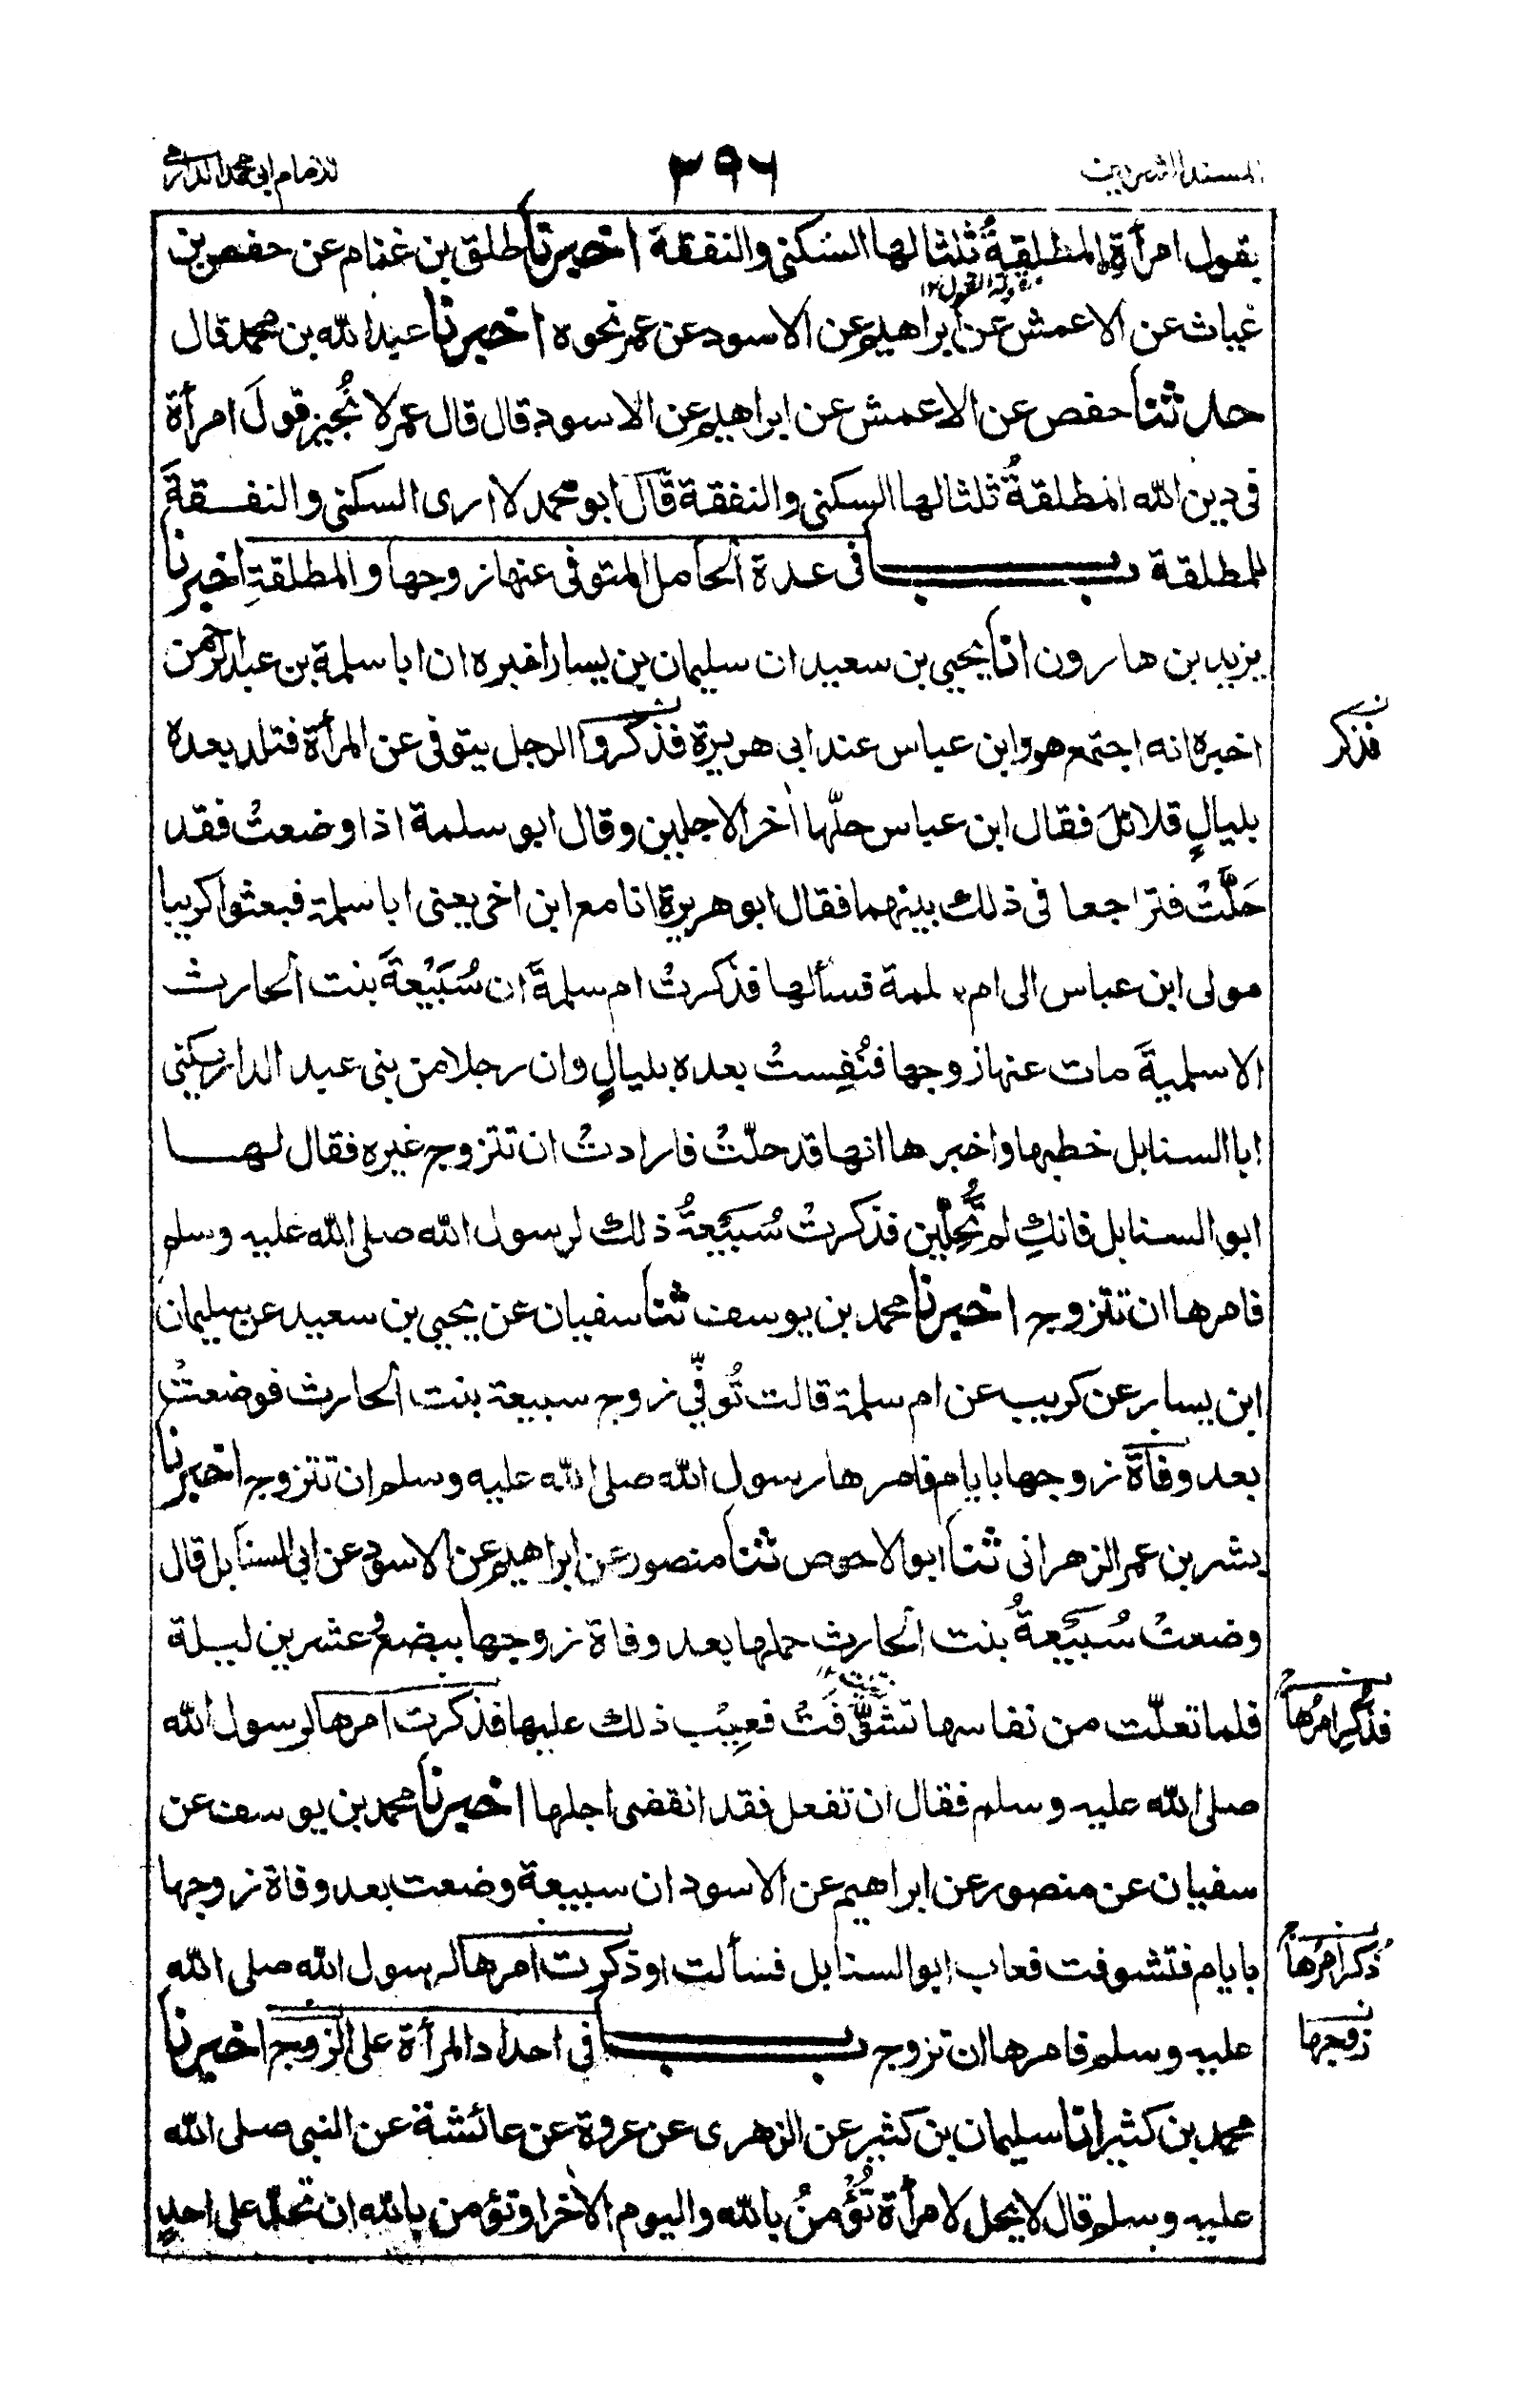 المسند الشريف ٢٩٦ للامام ابی محمد الدارمی
بقول امرأةٍ المطلقةُ ثلثا لها السكنى والنفقة اخبرنا طلق بن غنام عن حفص بن
مقولة القول ١٢
غياث عن الاعمش عن ابراهيم عن الاسود عن عمر نحوه اخبرنا عبد الله بن محمد قال
حدثنا حفص عن الاعمش عن ابراهيم عن الاسود قال قال عمر لا نُجيز قولَ امرأة
فى دين الله المطلقةُ ثلثا لها السكنى والنفقة قال ابو محمد لا ارى السكنى والنفقةَ
للمطلقة باب فى عدة الحامل المتوفى عنها زوجها والمطلقةِ اخبرنا
يزيد بن هارون انا يحيى بن سعيد ان سليمان بن يسار اخبره ان ابا سلمة بن عبد الرحمن
اخبره انه اجتمع هو وابن عباس عند ابى هريرة فذكروا الرجل يتوفى عن المرأة فتلد بعده
فذكر
بليالٍ قلائلَ فقال ابن عباس حلّها اٰخر الاجلين وقال ابو سلمة اذا وضعتْ فقد
حَلَّتْ فتراجعا فى ذلك بينهما فقال ابو هريرة انا مع ابن اخى يعنى ابا سلمة فبعثوا كريبا
مولى ابن عباس الى ام سلمة فسألها فذكرتْ ام سلمةَ ان سُبَيْعَةَ بنت الحارث
الاسلميةَ مات عنها زوجها فنُفِستْ بعده بليالٍ وان رجلا من بنى عبد الدار يكنى
ابا السنابل خطبها واخبرها انها قد حلّتْ فارادتْ ان تتزوج غيره فقال لها
ابو السنابل فانكِ لم تُحِلّين فذكرتْ سُبَيْعةُ ذلك لرسول الله صلى الله عليه وسلم
فامرها ان تتزوج اخبرنا محمد بن يوسف ثنا سفيان عن يحيى بن سعيد عن سليمان
ابن يسار عن كريب عن ام سلمة قالت تُوفّي زوج سبيعة بنت الحارث فوضعتْ
بعد وفاة زوجها بايام فامرها رسول الله صلى الله عليه وسلم ان تتزوج اخبرنا
بشر بن عمر الزهرانى ثنا ابو الاحوص ثنا منصور عن ابراهيم عن الاسود عن ابى السنابل قال
وضعتْ سُبَيْعةُ بنت الحارث حملها بعد وفاة زوجها ببضعٍ وعشرين ليلة
فلما تعلّت من نفاسها تشوّفَتْ فعِيبَ ذلك عليها فذكرت امرها لرسول الله
فذُكِر امرُها
صلى الله عليه وسلم فقال ان تفعل فقد انقضى اجلها اخبرنا محمد بن يوسف عن
سفيان عن منصور عن ابراهيم عن الاسود ان سبيعة وضعت بعد وفاة زوجها
بايام فتشوفت فعاب ابو السنابل فسألت او ذكرت امرها لرسول الله صلى الله
ذُكر امرُها
عليه وسلم فامرها ان تزوج باب فى احداد المرأة على الزوج اخبرنا
زوجها
محمد بن كثير انا سليمان بن كثير عن الزهرى عن عروة عن عائشة عن النبى صلى الله
عليه وسلم قال لا يحل لامرأة تُؤْمنُ بالله واليوم الاٰخر او تؤمن بالله ان تحدّ على احدٍ